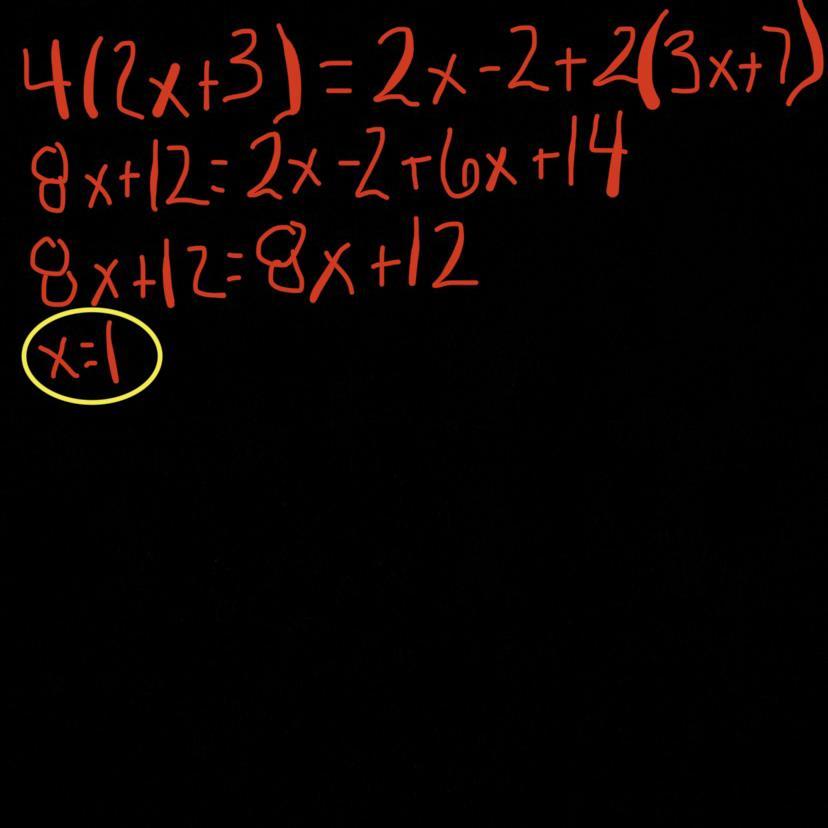 4(2x+3) = 2x-2+2(3x+7)
8x+12=2x-2+6x+14
8x+12=8x+12
x=1